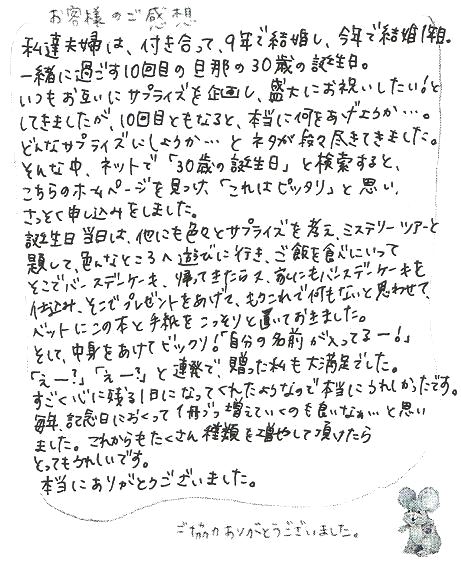 お客様のご感想
私達夫婦は、付き合って、9年で結婚し、今年で結婚1年目。
一緒に過ごす10回目の旦那の30歳の誕生日。
いつもお互いにサプライズを企画し、盛大にお祝いしたい!と
してきましたが、10回目ともなると、本当に何をあげようか…。
どんなサプライズにしようか…とネタが段々尽きてきました。
そんな中、ネットで「30歳の誕生日」と検索すると、
こちらのホームページを見つけ、「これはピッタリ」と思い、
さっそく申し込みをしました。
誕生日当日は、他にも色々とサプライズを考え、ミステリーツアーと
題して、色んなところへ遊びに行き、ご飯を食べにいって
そこでバースデーケーキ、帰ってきたらまた、家にもバースデーケーキを
仕込み、そこでプレゼントをあげて、もうこれで何もないと思わせて、
ベットにこの本と手紙をこっそりと置いておきました。
そして、中身をあけてビックリ!「自分の名前が入ってるー!」
「えー?」「えー?」と連発で、贈った私も大満足でした。
すごく心に残る1日になってくれたようなので本当にうれしかったです。
毎年、記念日におくって1冊づつ増えていくのも良いなぁ…と思い
ました。これからもたくさん種類を増やして頂けたら
とってもうれしいです。
本当にありがとうございました。
ご協力ありがとうございました。